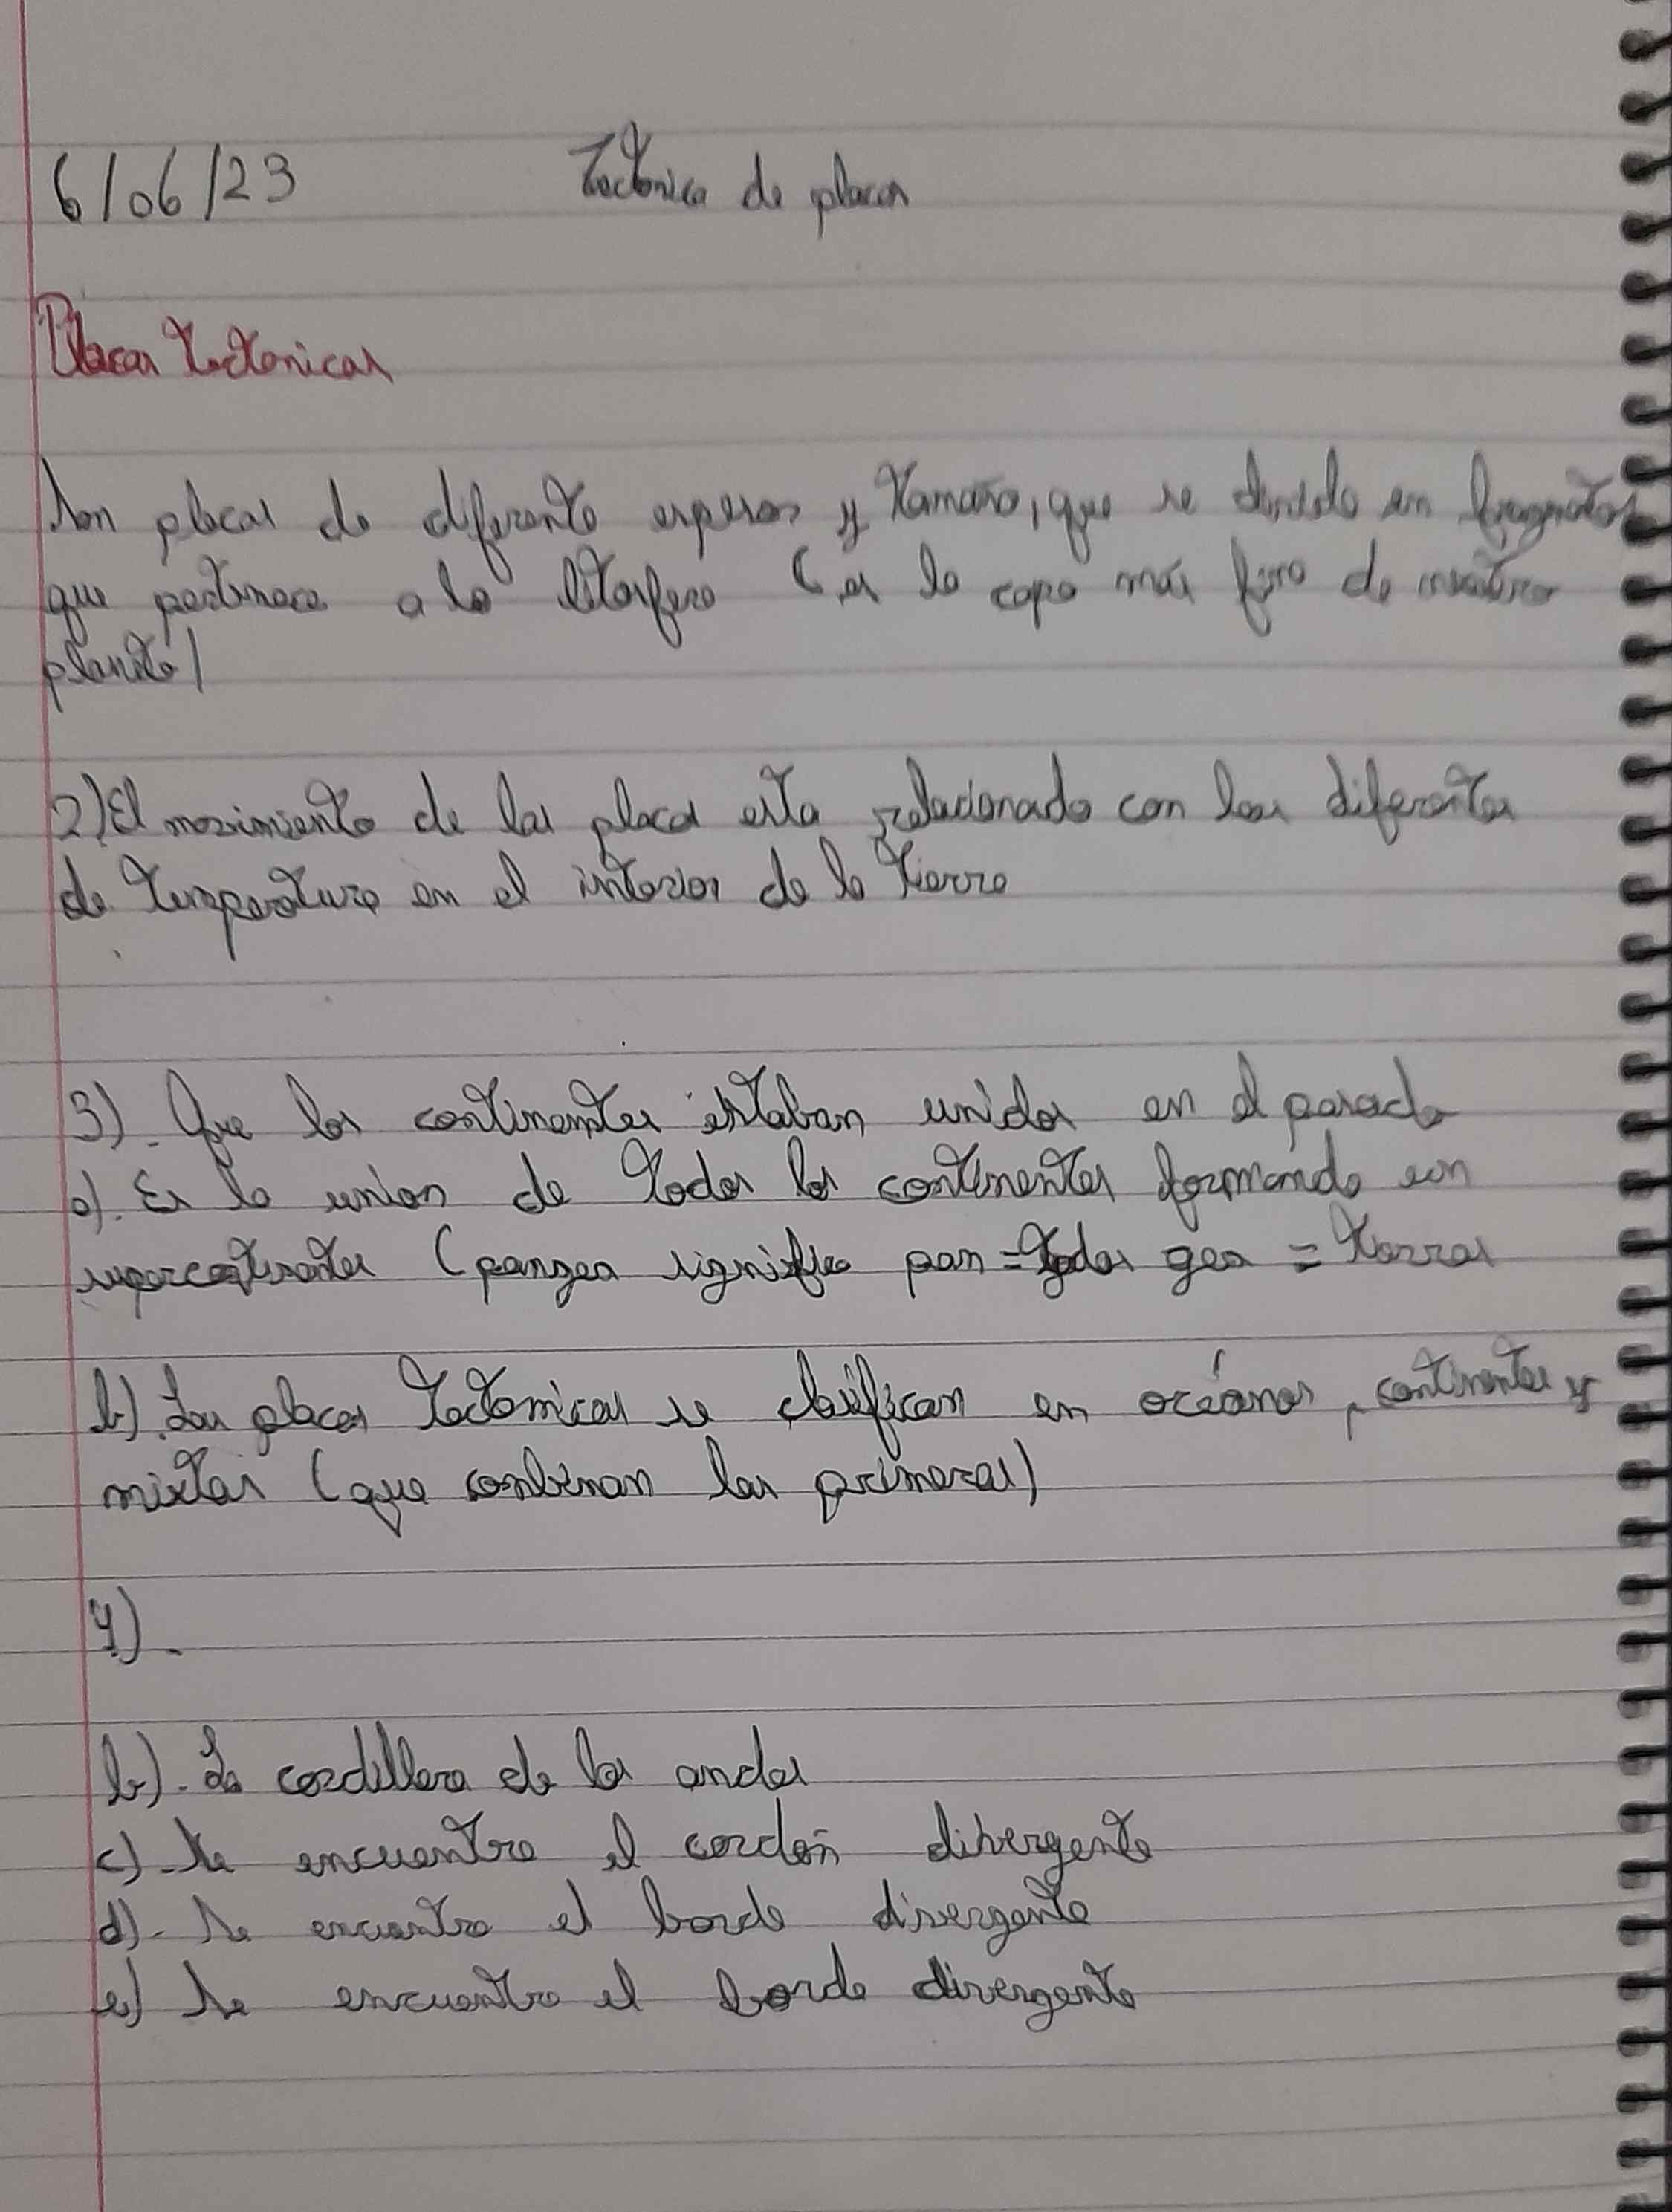 6/06/23 Tectonica de placas
Placas tectonicas
Son placas de diferente espesor y tamaño, que se divide en fragmentos
que pertenece a la litosfera (es la capa más fina de nuestro
planeta)
2) El movimiento de las placas esta relacionado con las diferentes
de temperatura en el interior de la tierra
3). Que los continentes estaban unidos en el pasado
a). Es la union de todos los continentes formando un
supercontinentes (pangea significa pan = todos gea = tierras
b). Las placas tectonicas se clasifican en océanos, continentes y
mixtas (que combinan las primeras)
4).
b).- La cordillera de los andes
c).- Se encuentra el cordón divergente
d).- Se encuentra el borde divergente
e) Se encuentra el borde divergente